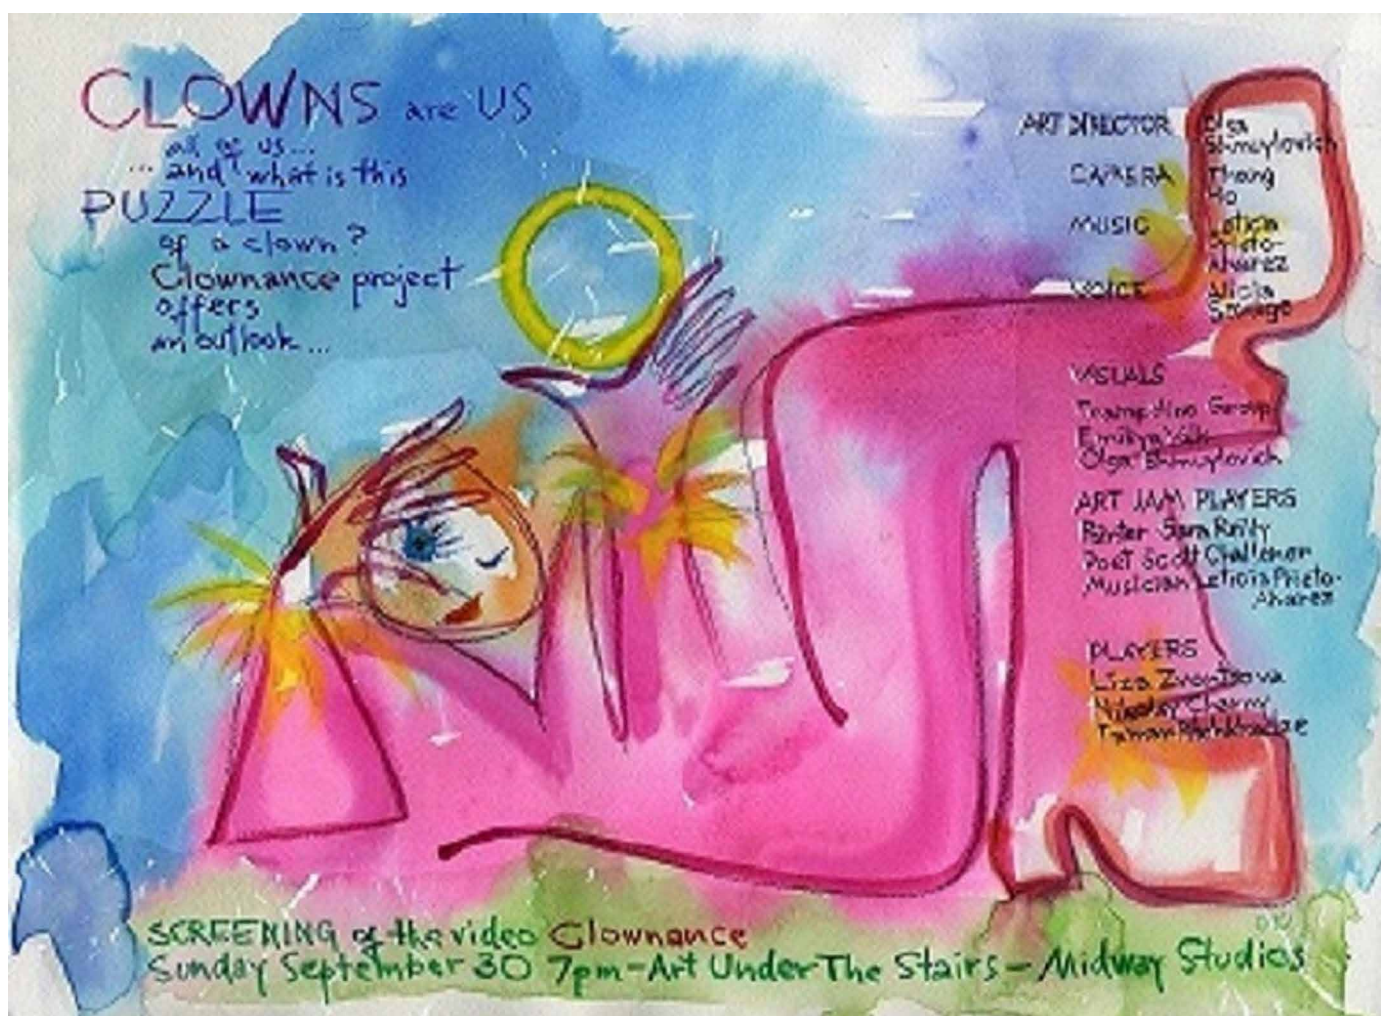 CLOWNS are US
all of us...
... and what is this
PUZZLE
of a clown?
Clownance project
offers
an outlook...
ART DIRECTOR Olga
Shmuylovich
CAMERA Thang
Ho
MUSIC Leticia
Prieto-
Alvarez
VOICE Alicia
VISUALS
Group
Emiliya
Olga Shmuylovich
ART JAM PLAYERS
Painter Sara Reilly
Poet Scott Challener
Musician Leticia Prieto-
Alvarez
PLAYERS
Liza Zvontsova
Nikolay
SCREENING of the video Clownance
Sunday September 30 7pm-Art Under The Stairs - Midway Studios